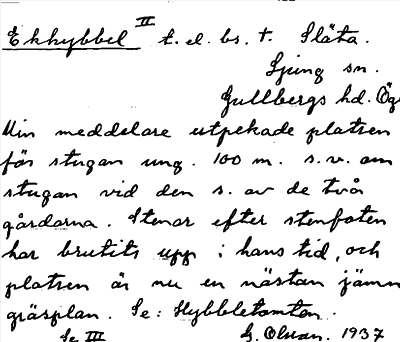 Ekhybbel II t. el. bs. t. Släta.
Ljung sn.
Gullbergs hd. Ög
Min meddelare utpekade platsen
för stugan ung. 100 m. s.v. om
stugan vid den s. av de två
gårdarna. Stenar efter stenfoten
har brutits upp i hans tid, och
platsen är nu en nästan jämn
gräsplan. Se: Hybbletomten.
Se III G. Olsson. 1937